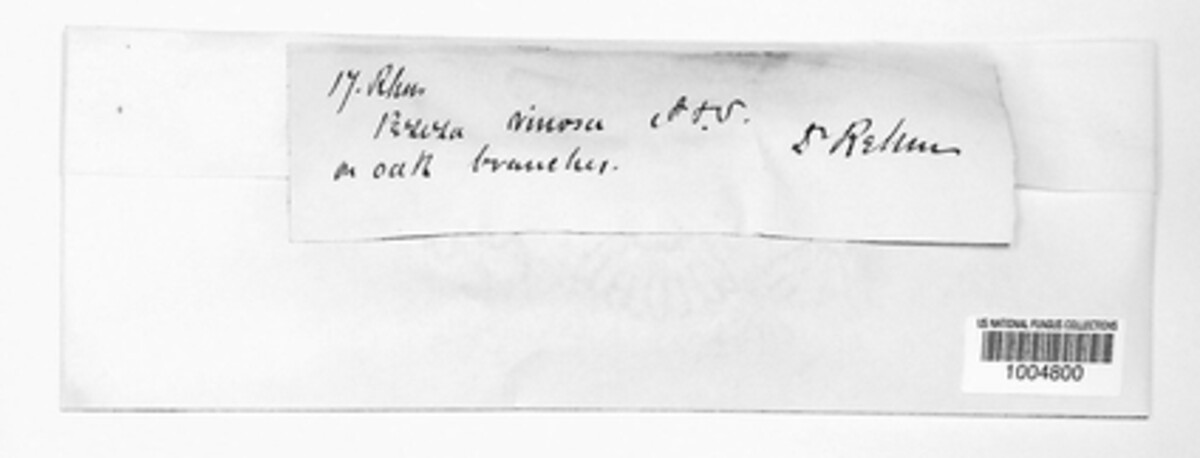 17. Rhus
Peziza vinosa A & S.
on oak branches.
Dr Rehm
US NATIONAL FUNGUS COLLECTIONS
1004800